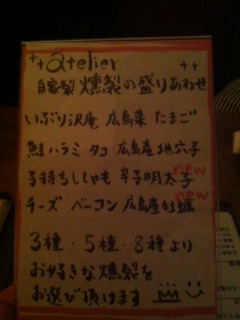 atelier
自家製 燻製の盛りあわせ
いぶり沢庵 広島菜 たまご
鮭ハラミ タコ 広島産地穴子
new
子持ちししゃも 辛子明太子
new
チーズ ベーコン 広島産牡蠣
3種・5種・8種より
お好きな燻製を
お選び頂けます